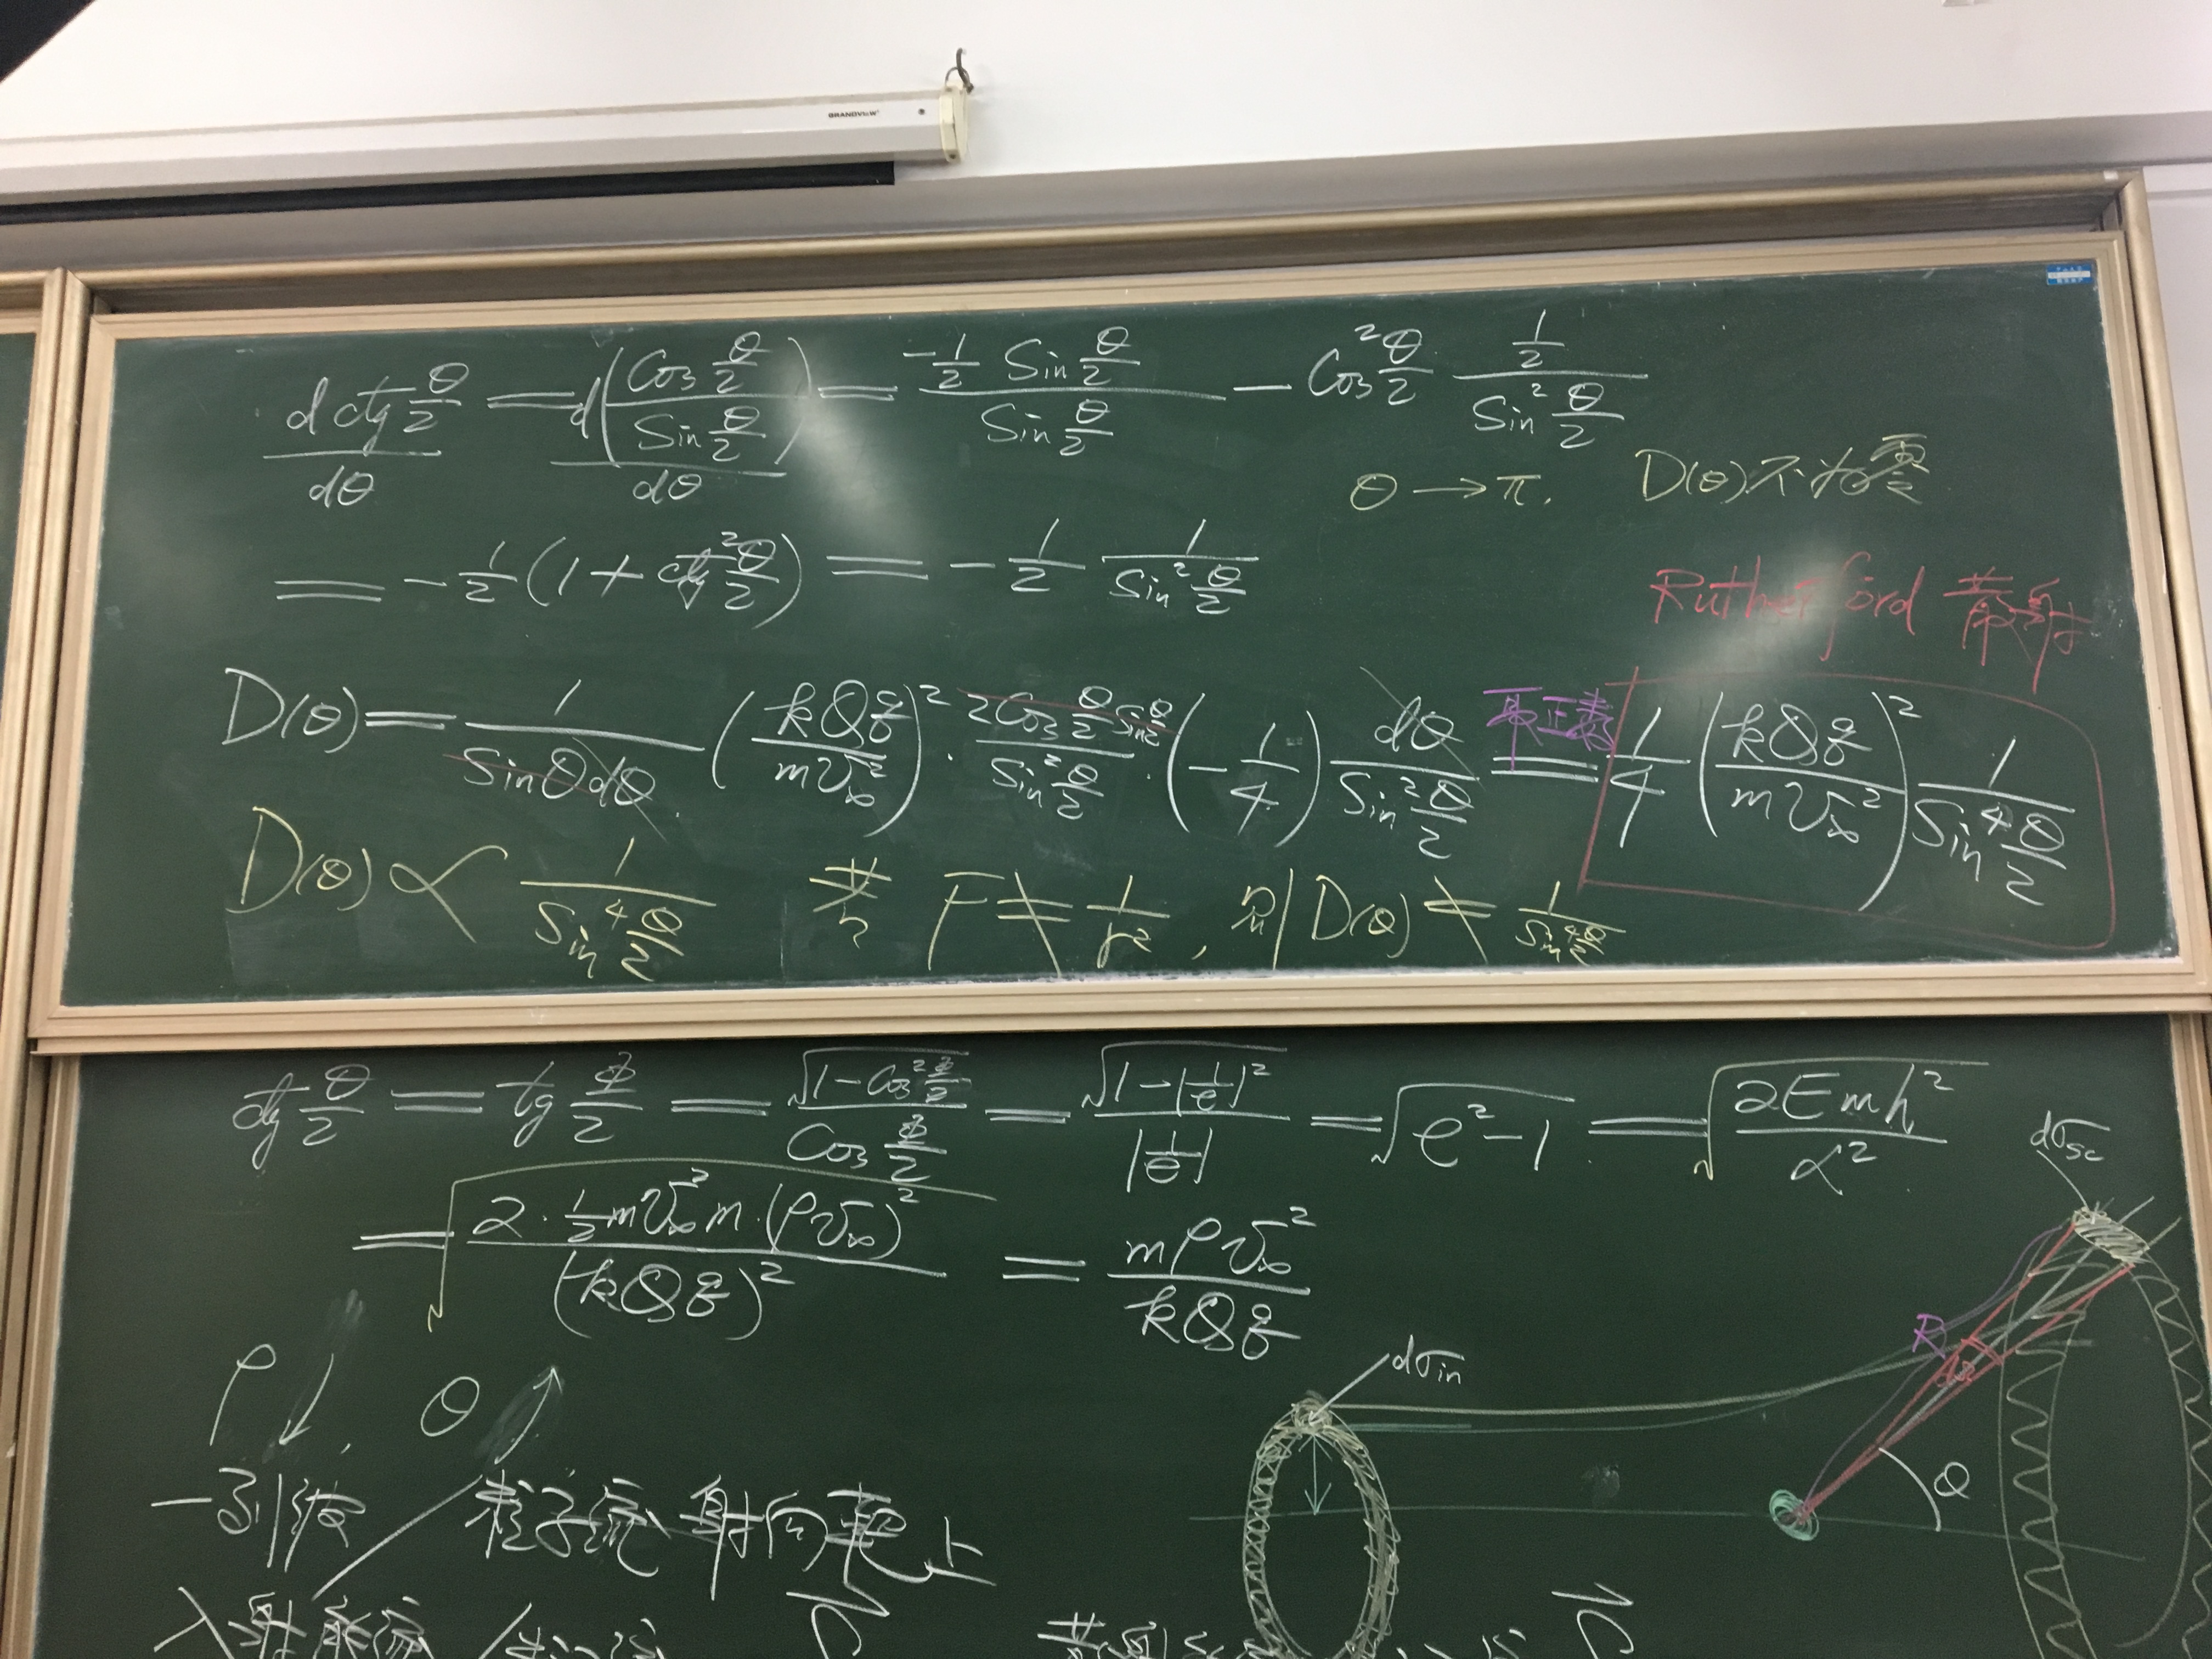 GRANDVIEW
d ctg θ/2 / dθ = d(Cos θ/2 / Sin θ/2) / dθ = -1/2 Sin θ/2 / Sin θ/2 - Cos² θ/2 · 1/2 / Sin² θ/2
θ → π. D(θ)不为零
= -1/2 (1 + ctg² θ/2) = -1/2 1/Sin² θ/2
Rutherford 散射
D(θ) = 1/(Sinθdθ) (kQq/mv∞²)² · 2Cos θ/2 Sin θ/2 / Sin² θ/2 · (-1/4) dθ/Sin² θ/2 取正数 = 1/4 (kQq/mv∞²)² 1/Sin⁴ θ/2
D(θ) ∝ 1/Sin⁴ θ/2 若 F ≠ 1/r², 则 D(θ) ≠ 1/Sin⁴ θ/2
ctg θ/2 = tg Φ/2 = √(1-Cos² Φ/2) / Cos Φ/2 = √(1-|1/e|²) / |1/e| = √(e²-1) = √(2Emh²/α²)
dσsc
= √(2·1/2 mv∞² m·(ρv∞)² / (kQq)²) = mρv∞² / kQq
R
dΩ
dσin
ρ↓, θ↑
θ
一引线 粒子流 射向靶上